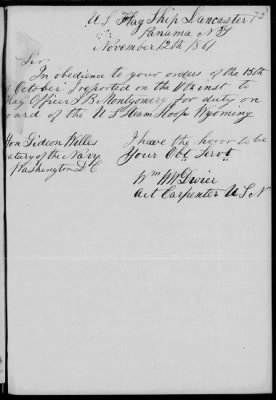 73
U S Flag Ship Lancaster
Panama N G
November 12th 1861
Sir
In obedience to your orders of the 15th
of October I reported on the 11th inst to
Flag Officer J B Montgomery for duty on
board of the U S Steam Sloop Wyoming
I have the honor to be
Your Obt Servt
Wm
Act Carpenter U S N
Hon Gideon Welles
etary of the Navy
Washington D C